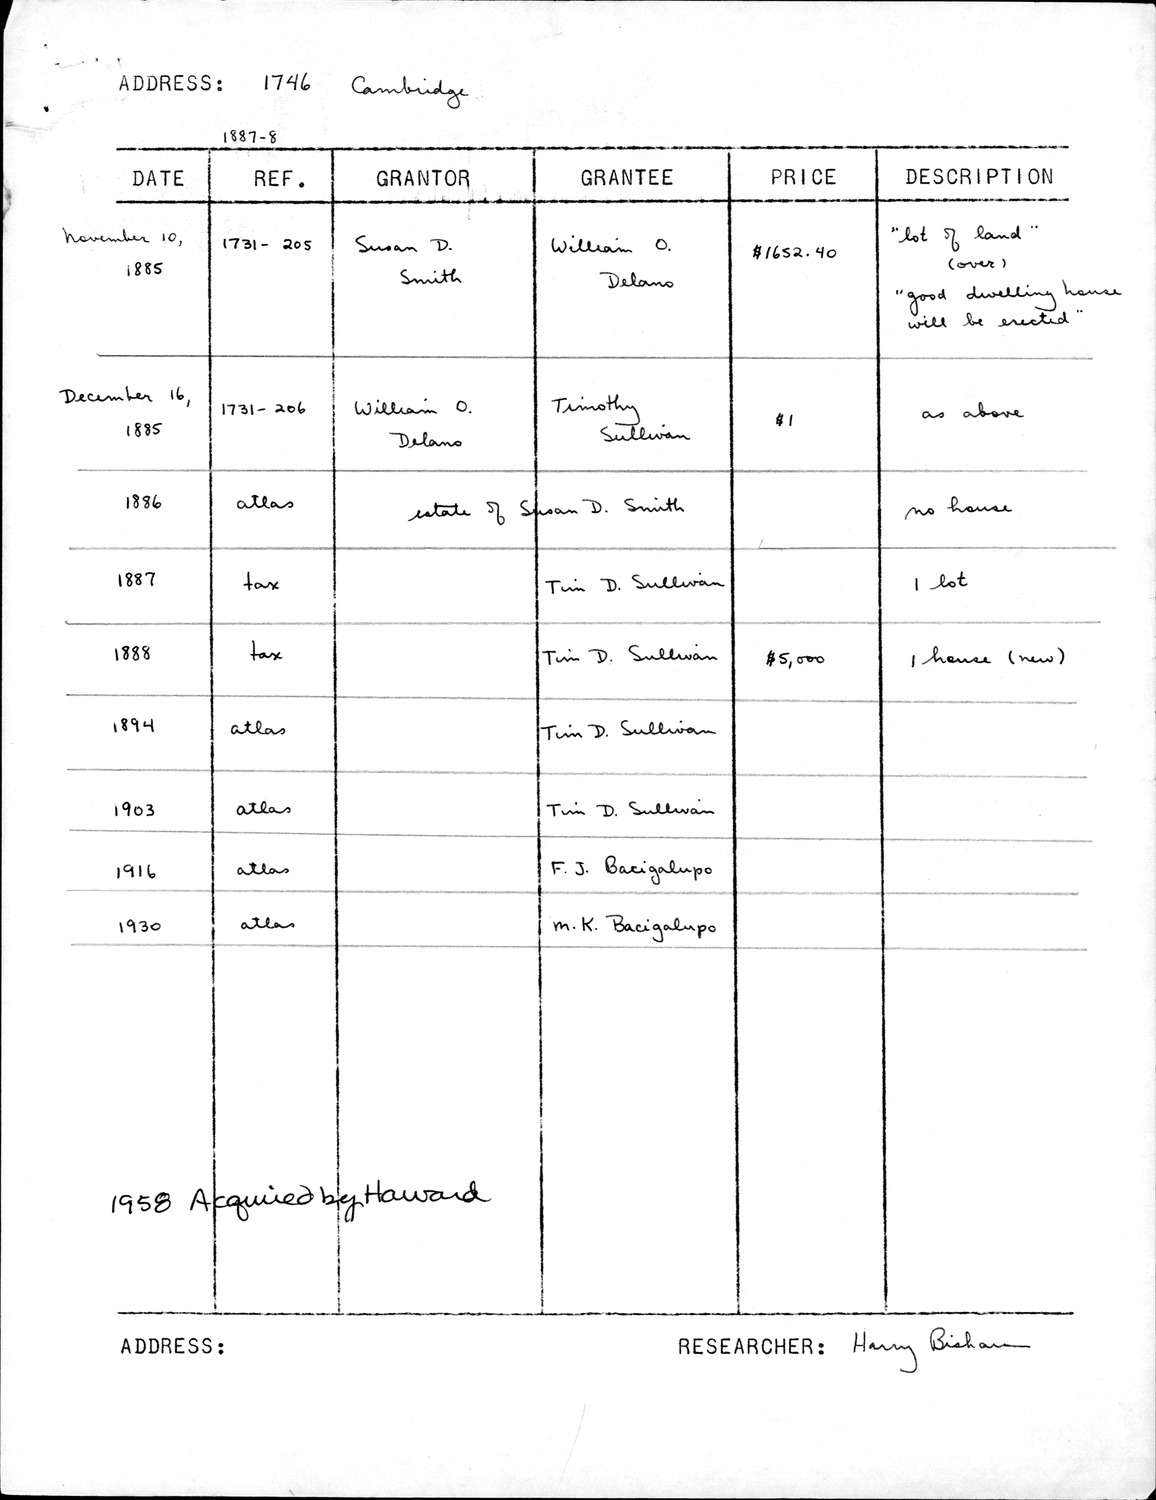 ADDRESS: 1746 Cambridge
1887-8
DATE REF. GRANTOR GRANTEE PRICE DESCRIPTION
November 10, 1885 1731-205 Susan D. Smith William O. Delano $1652.40 "lot of land"
(over)
"good dwelling house
will be erected"
December 16, 1885 1731-206 William O. Delano Timothy Sullivan $1 as above
1886 atlas estate of Susan D. Smith no house
1887 tax Tim D. Sullivan 1 lot
1888 tax Tim D. Sullivan $5,000 1 house (new)
1894 atlas Tim D. Sullivan
1903 atlas Tim D. Sullivan
1916 atlas F. J. Bacigalupo
1930 atlas M. K. Bacigalupo
1958 Acquired by Harvard
ADDRESS: RESEARCHER: Harry